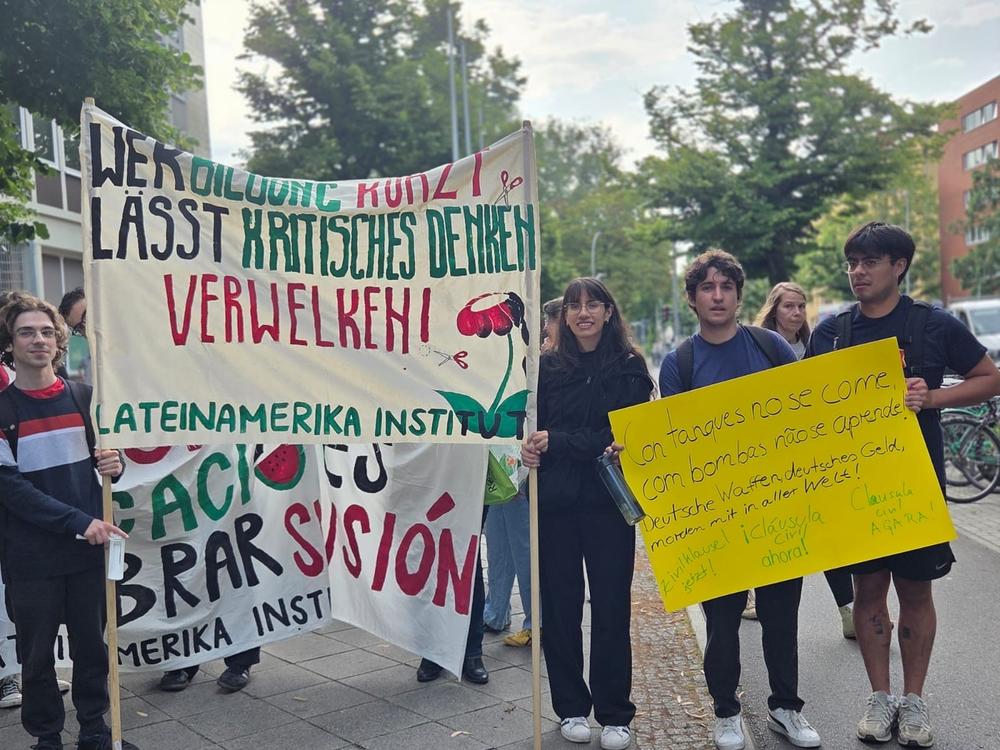 WER BILDUNG KÜRZT
LÄSST KRITISCHES DENKEN
VERWELKEN!
LATEINAMERIKA INSTITUT
CACIO ES
BRAR SU
SIÓN
AMERIKA INSTI
Con tanques no se come,
com bombas não se aprende!
Deutsche Waffen, deutsches Geld,
morden mit in aller Welt!
Zivilklausel
jetzt!
¡Cláusula
civil
ahora!
Clausula
civil
AGORA!